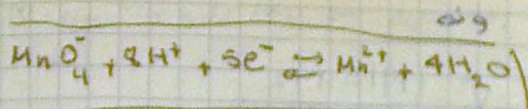 MnO₄⁻ + 8H⁺ + 5e⁻ ⇌ Mn²⁺ + 4H₂O